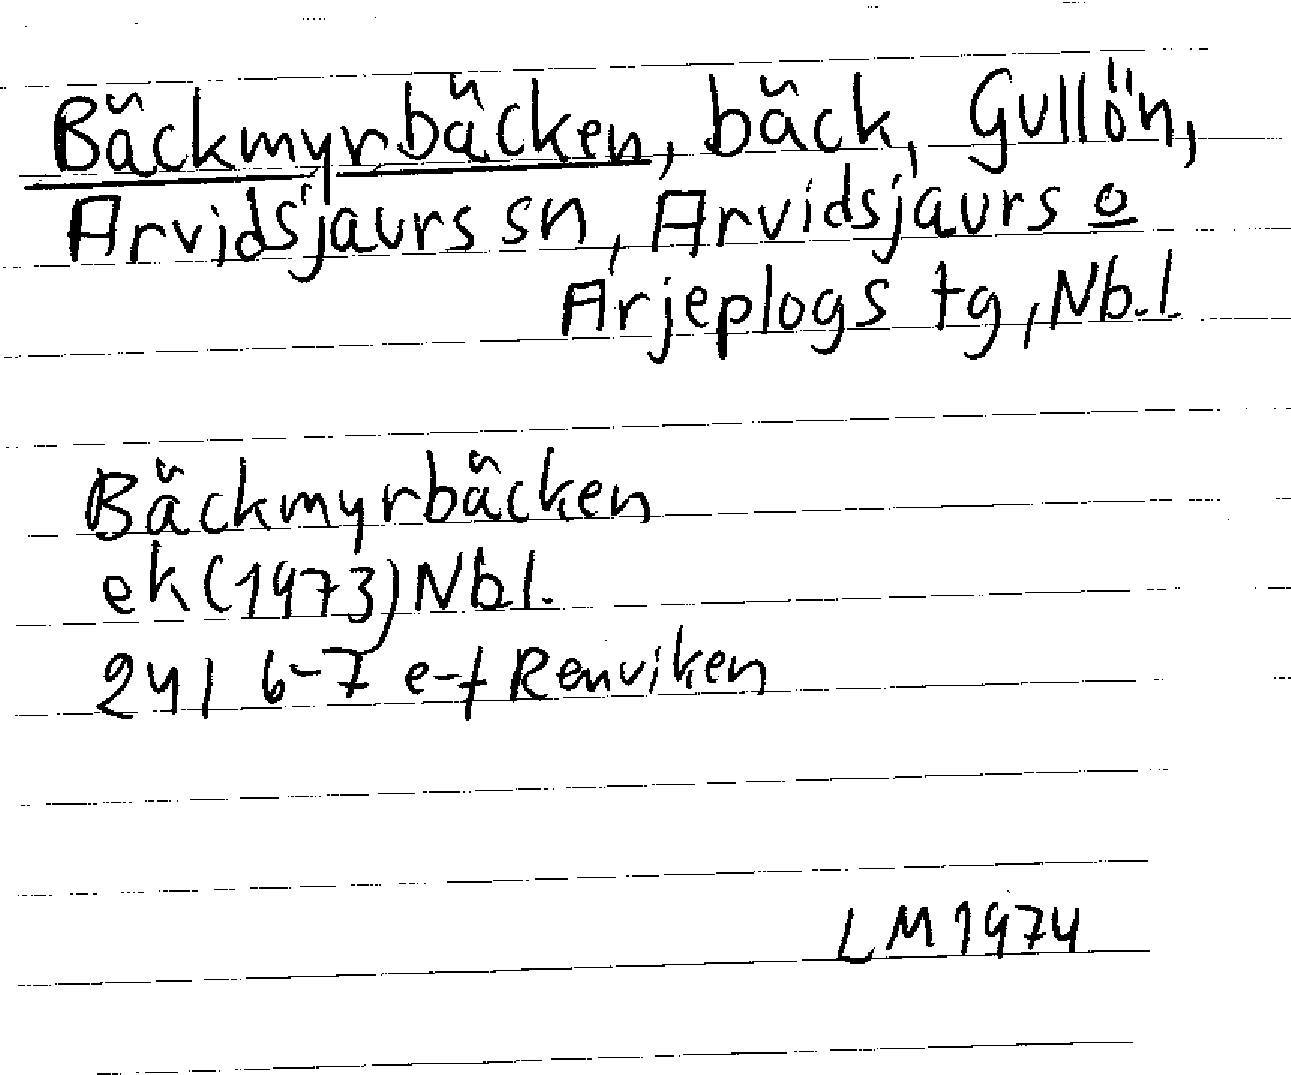 Bäckmyrbäcken, bäck, Gullön,
Arvidsjaurs sn, Arvidsjaurs o
Arjeplogs tg, Nb.l.
Bäckmyrbäcken
ek (1973) Nbl.
24I 6-7 e-f Renviken
LM 1974